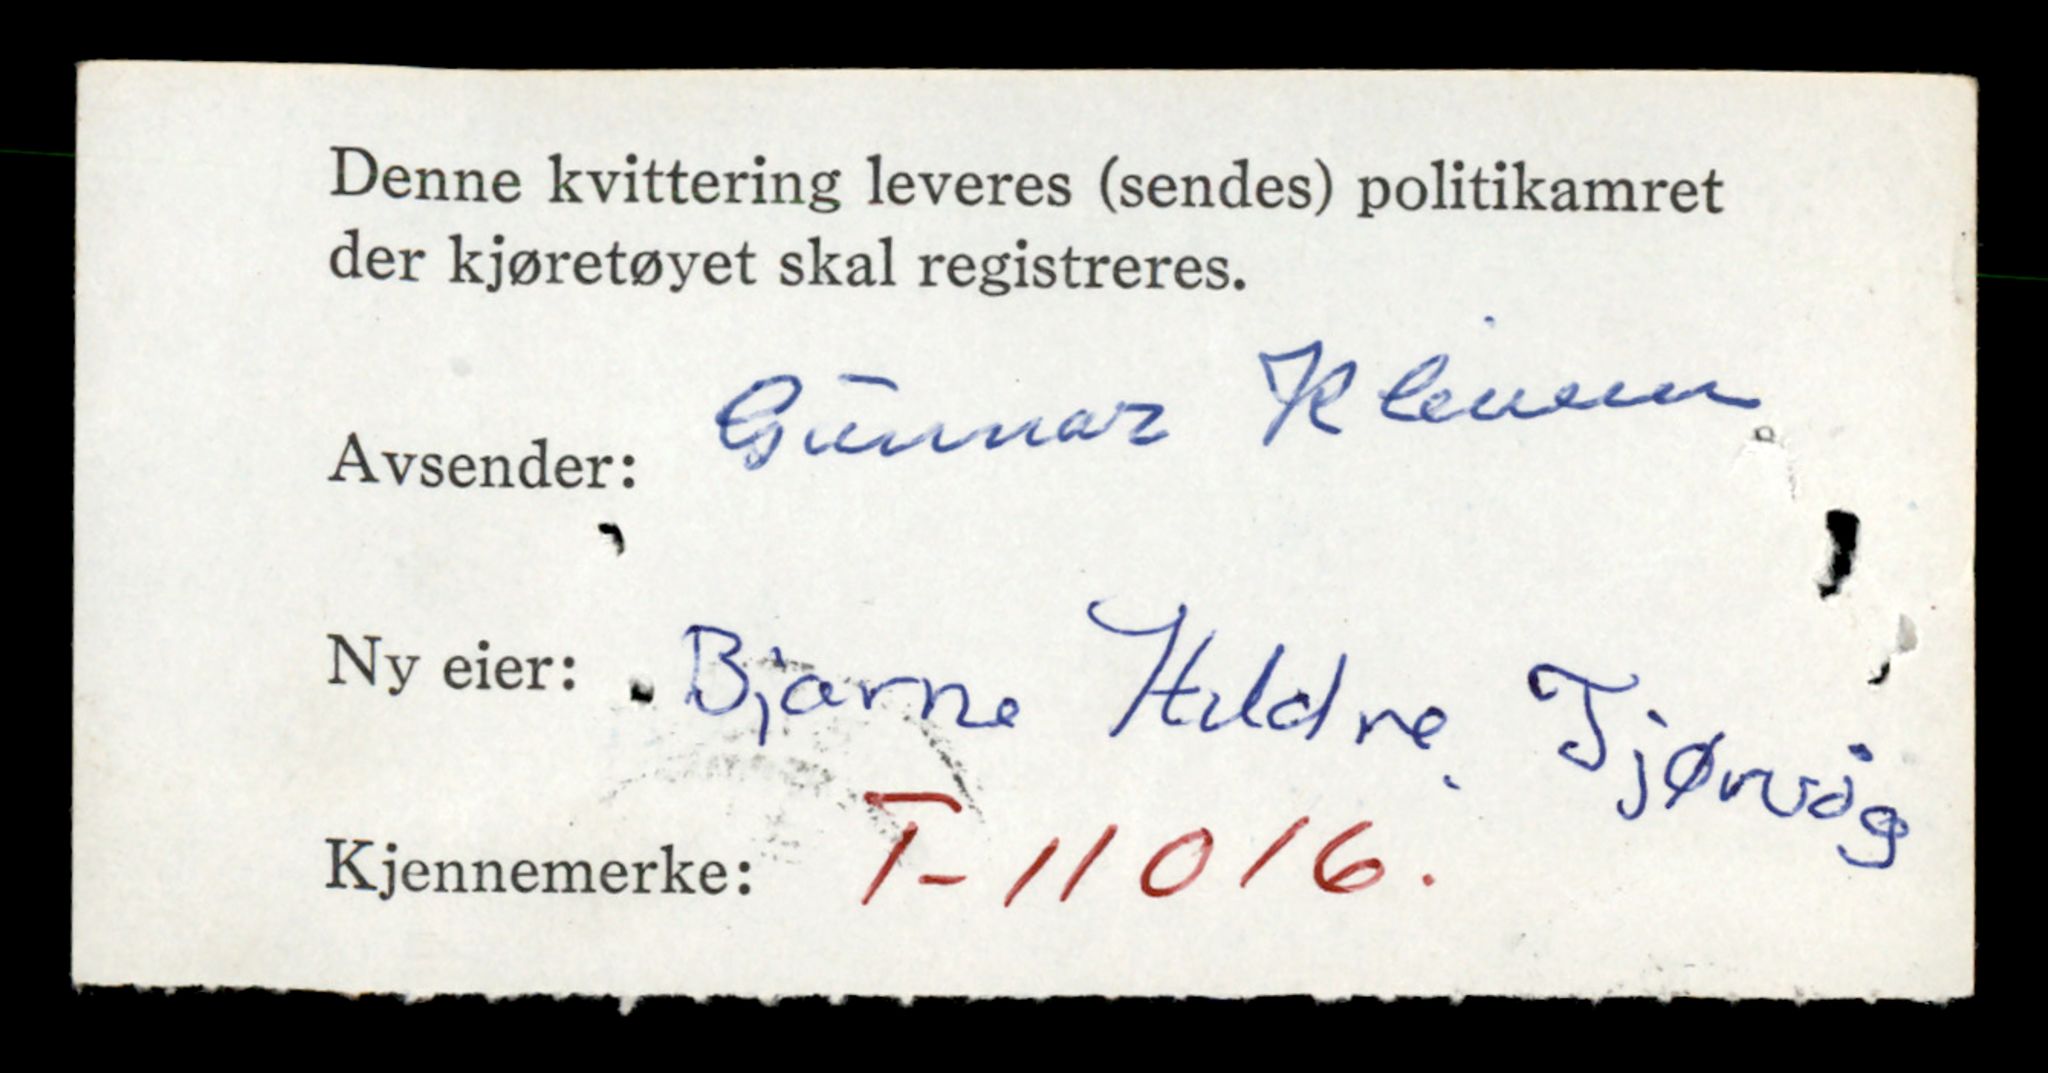 Denne kvittering leveres (sendes) politikamret
der kjøretøyet skal registreres.
Avsender: Gunnar Klevem
Ny eier: Bjarne Hildre, Tjørvåg
Kjennemerke: T-11016.